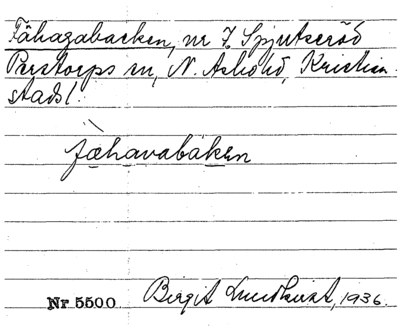 Fähagabacken, nr 7 Spjutseröd
Perstorps sn, N. Åsbo hd, Kristian-
stads l.
fæhavabaken
Nr 5500 Birgit Lundkvist, 1936.